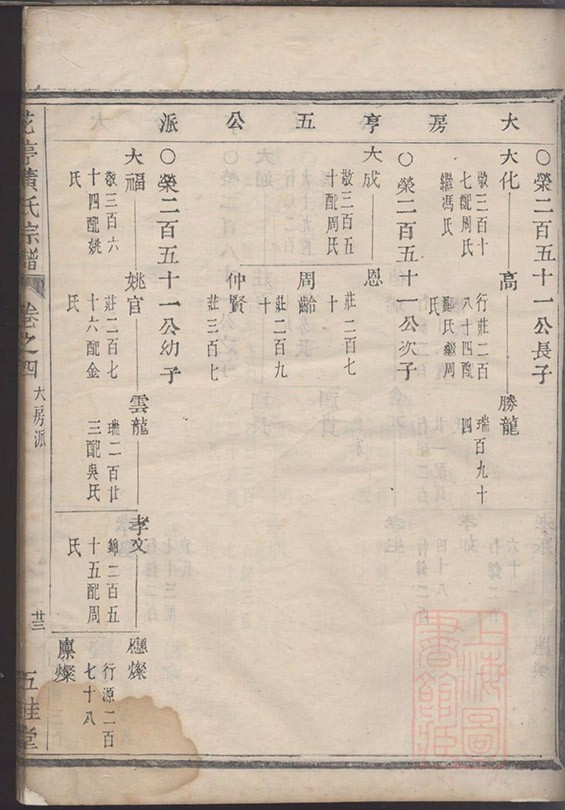 大房亨五公派
○榮二百五十一公長子
大化
敬三百十
七配周氏
繼馮氏
高
行莊二百
八十四配
鄭氏繼周
氏
勝龍
瑞百九十
四
○榮二百五十一公次子
大成
敬三百五
十配周氏
恩
莊二百七
十
周齡
莊二百九
十
仲賢
莊三百七
○榮二百五十一公幼子
大福
敬三百六
十四配姚
氏
姚官
莊二百七
十六配金
氏
雲龍
瑞二百廿
三配吳氏
孝文
錦二百五
十五配周
氏
應燦
行源二百
七十八
廪燦
花亭黃氏宗譜
卷之四
大房派
廿三
五桂堂
上海圖書館藏